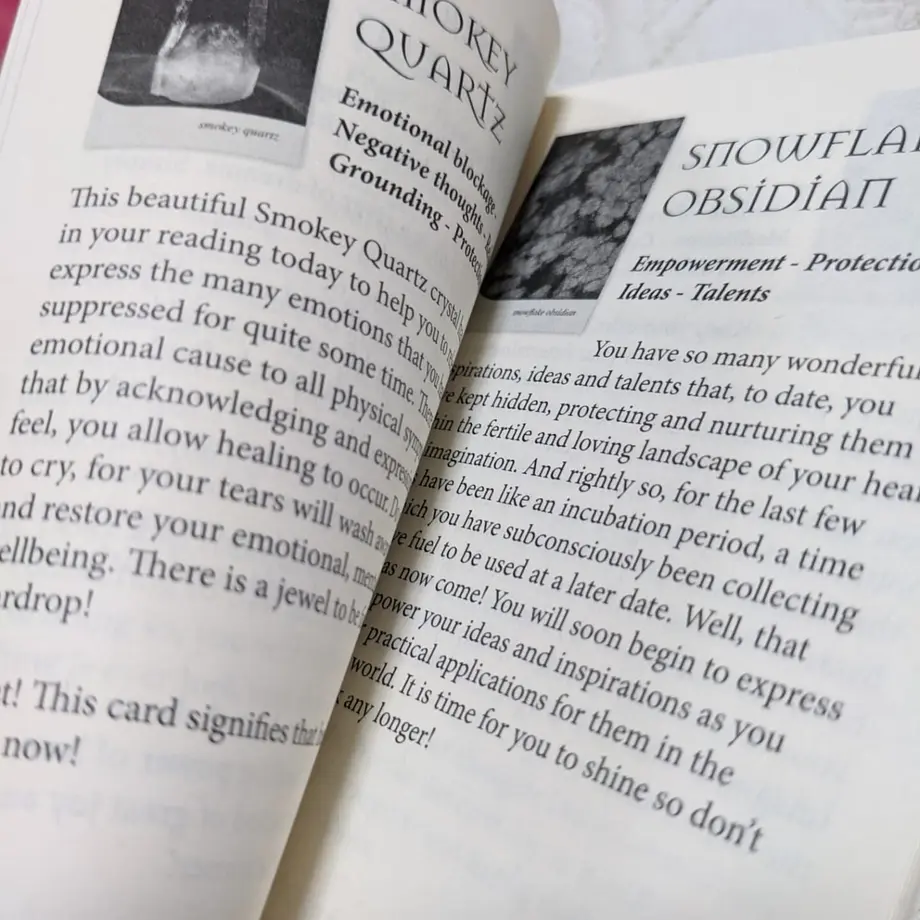 smokey quartz
QUARTZ
Emotional blockage -
Negative thoughts -
Grounding -
This beautiful Smokey Quartz crystal
in your reading today to help you to
express the many emotions that you
suppressed for quite some time.
emotional cause to all physical
that by acknowledging and
feel, you allow healing to occur.
to cry, for your tears will wash
and restore your emotional,
There is a jewel to be
This card signifies that
now!
snowflake obsidian
OBSIDIAN
Empowerment -
Ideas - Talents
You have so many wonderful
ideas and talents that, to date, you
kept hidden, protecting and nurturing them
the fertile and loving landscape of your
imagination. And rightly so, for the last few
have been like an incubation period, a time
you have subconsciously been collecting
fuel to be used at a later date. Well, that
now come! You will soon begin to express
your ideas and inspirations as you
practical applications for them in the
world. It is time for you to shine so don't
any longer!